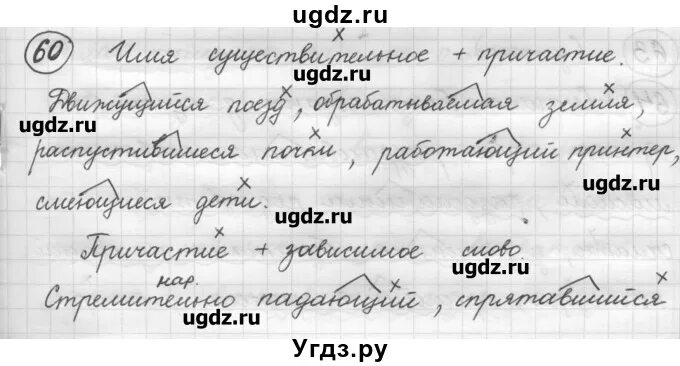 угдz.ru
60 Имя существительное + причастие.
угдz.ru
Движущийся поезд, обрабатываемая земля,
угдz.ru
распустившиеся почки, работающий принтер,
угдz.ru
смеющиеся дети.
угдz.ru
Причастие + зависимое слово.
угдz.ru
нар.
Стремительно падающий, спрятавшийся
угдz.ru
Угдз.ру